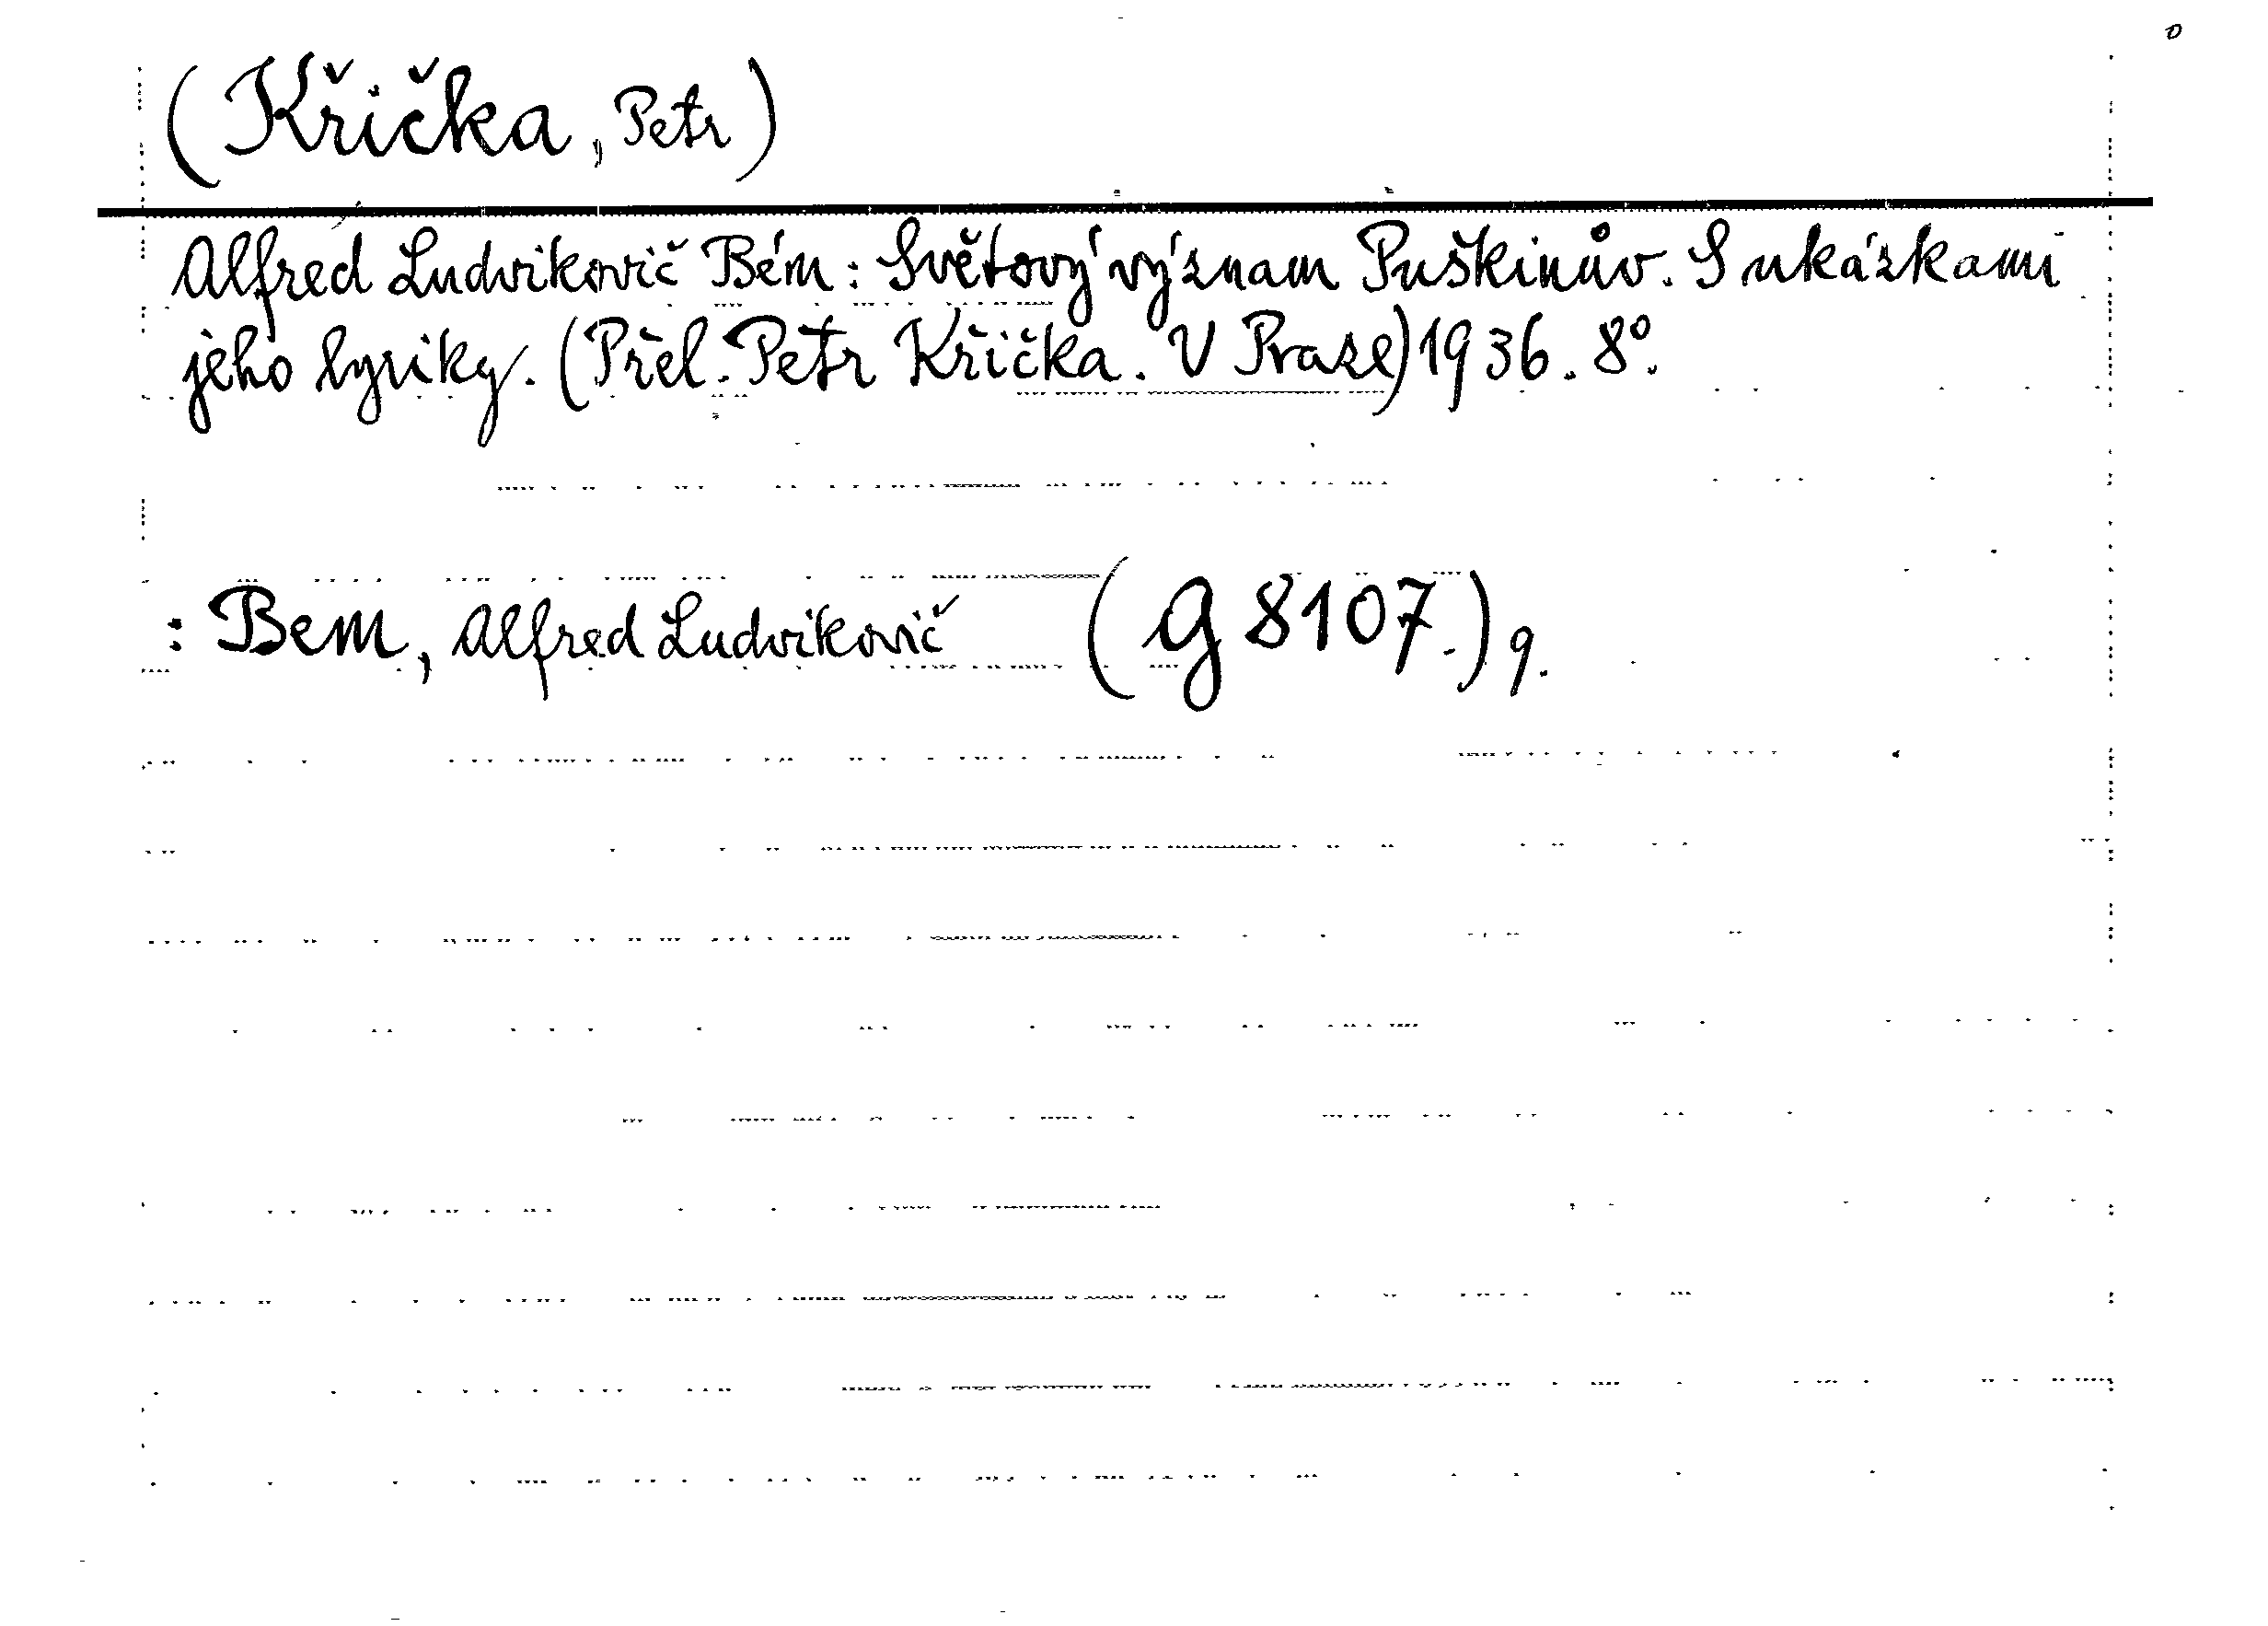 (Křička, Petr)
Alfred Ludvikovič Bém: Světový význam Puškinův. S ukázkami
jeho lyriky. (Přel. Petr Křička. V Praze) 1936. 8°.
: Bem, Alfred Ludvikovič (G 8107.) 9.